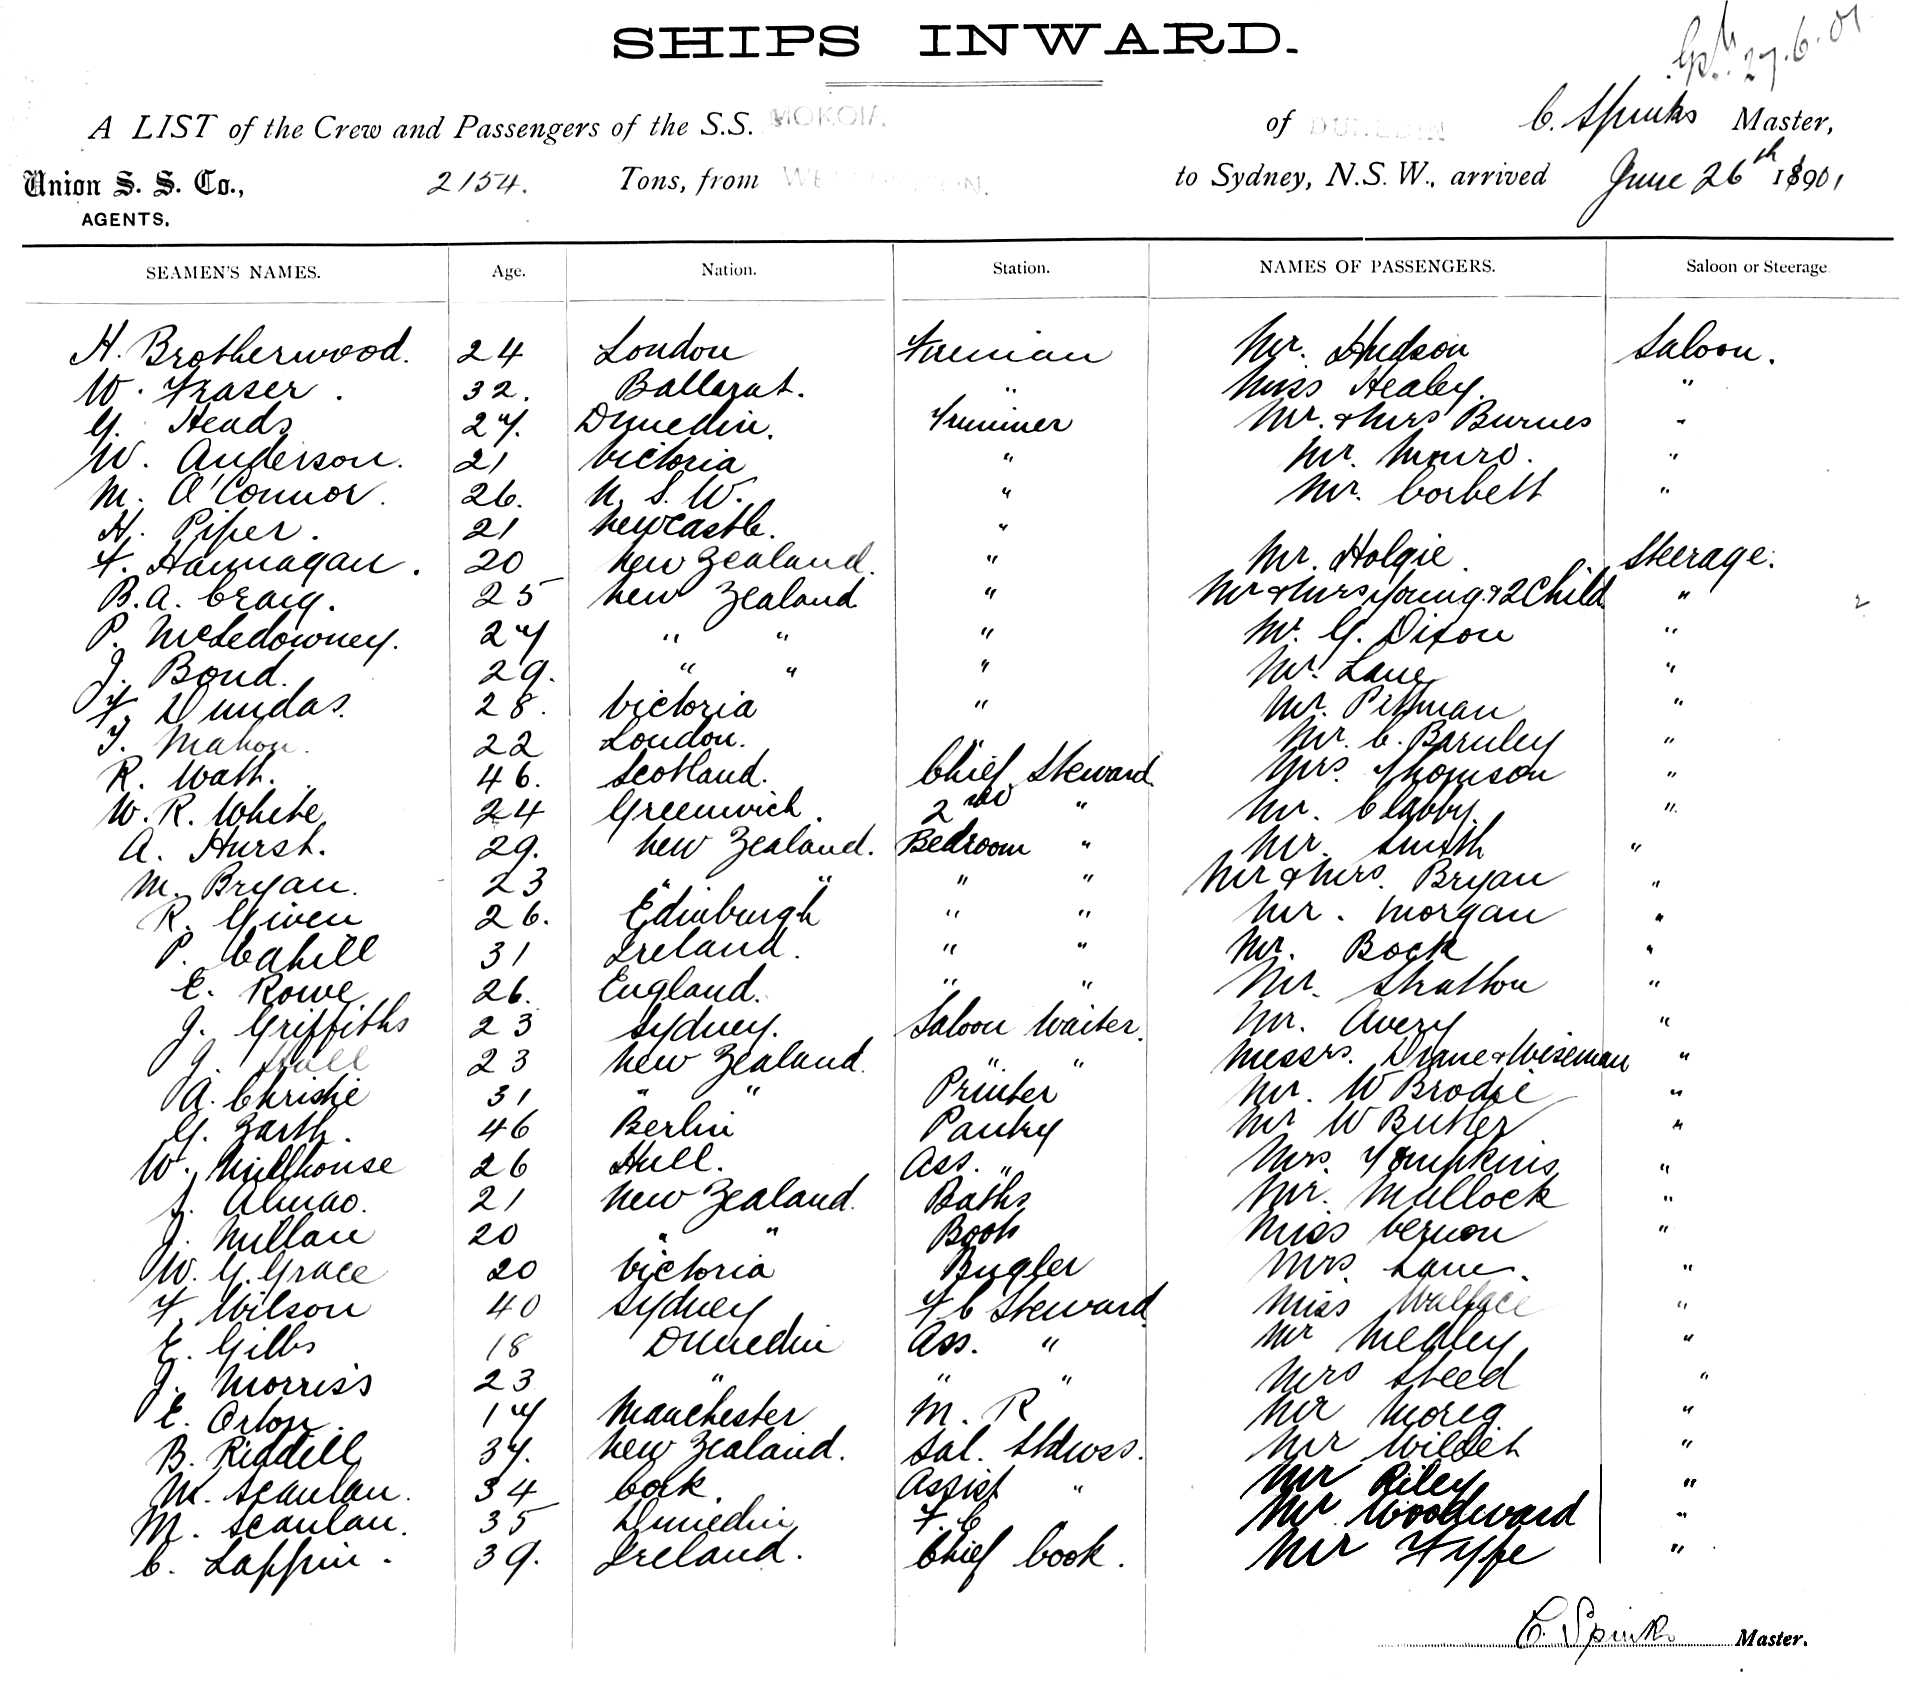 SHIPS INWARD.
27.6.01
A LIST of the Crew and Passengers of the S.S. MOKOIA of DUNEDIN C. Spinks Master,
Union S. S. Co., 2154. Tons, from WELLINGTON. to Sydney, N.S.W., arrived June 26th 1901
AGENTS.
SEAMEN'S NAMES. Age. Nation. Station. NAMES OF PASSENGERS. Saloon or Steerage
H. Brotherwood. 24 London Fireman Mr. Hudson Saloon.
W. Fraser. 32. Ballarat. " Miss Healey. "
G. Heads 27. Dunedin. Trimmer Mr. & Mrs Burnes "
W. Anderson. 21 Victoria " Mr. Munro. "
M. O'Connor. 26. N. S. W. " Mr. Corbett "
H. Piper. 21 Newcastle. "
F. Hannagan. 20 New Zealand. " Mr. Holgie. Steerage.
B. A. Craig. 25 New Zealand " Mr & Mrs Young & 2 Child "
P. McLedowney. 27 " " " Mr. G. Dixon "
J. Bond. 29. " " " Mr. Lane "
F. Dundas. 28. Victoria " Mr. Pitman "
T. Mahon. 22 London. " Mr. C. Barnley "
R. Wath. 46. Scotland. Chief Steward Mrs. Thomson "
W. R. White 24 Greenwich. 2nd " Mr. Clabby. "
A. Hurst. 29. New Zealand. Bedroom " Mr. Smith "
M. Bryan. 23 " " " " Mr & Mrs. Bryan "
R. Given 26. Edinburgh " " Mr. Morgan "
P. Cahill 31 Ireland. " " Mr. Bock "
E. Rowe 26. England. " " Mr. Stratton "
J. Griffiths 23 Sydney. Saloon Waiter. Mr. Avery "
J. 23 New Zealand. " " Messrs. Drane & Wiseman "
A. Christie 31 " " Printer Mr. W Brodie "
G. Zarth. 46 Berlin Pantry Mr W Butler "
W. Millhouse 26 Hull. Ass. " Mrs. Tompkins "
Almao. 21 New Zealand. Baths Mr. Mullock "
J. Millan 20 " " Boots Miss Vernon "
W. G. Grace 20 Victoria Bugler Mrs. Lane. "
F. Wilson 40 Sydney F C Steward Miss Wallace "
E. Gibbs 18 Dunedin Ass. " Mr Medley "
J. Morriss 23 " " " Mrs Steed "
E. Orton. 17 Manchester M. R Mr "
B. Riddell 37. New Zealand. Sal. Stdwss. Mr "
M. Scanlan. 34 Cork. Assist " Mr Riley "
M. Scanlan. 35 Dunedin F. C Mr Woodward "
C. Lappin. 39. Ireland. Chief Cook. Mr Fyfe "
C. Spinks Master.